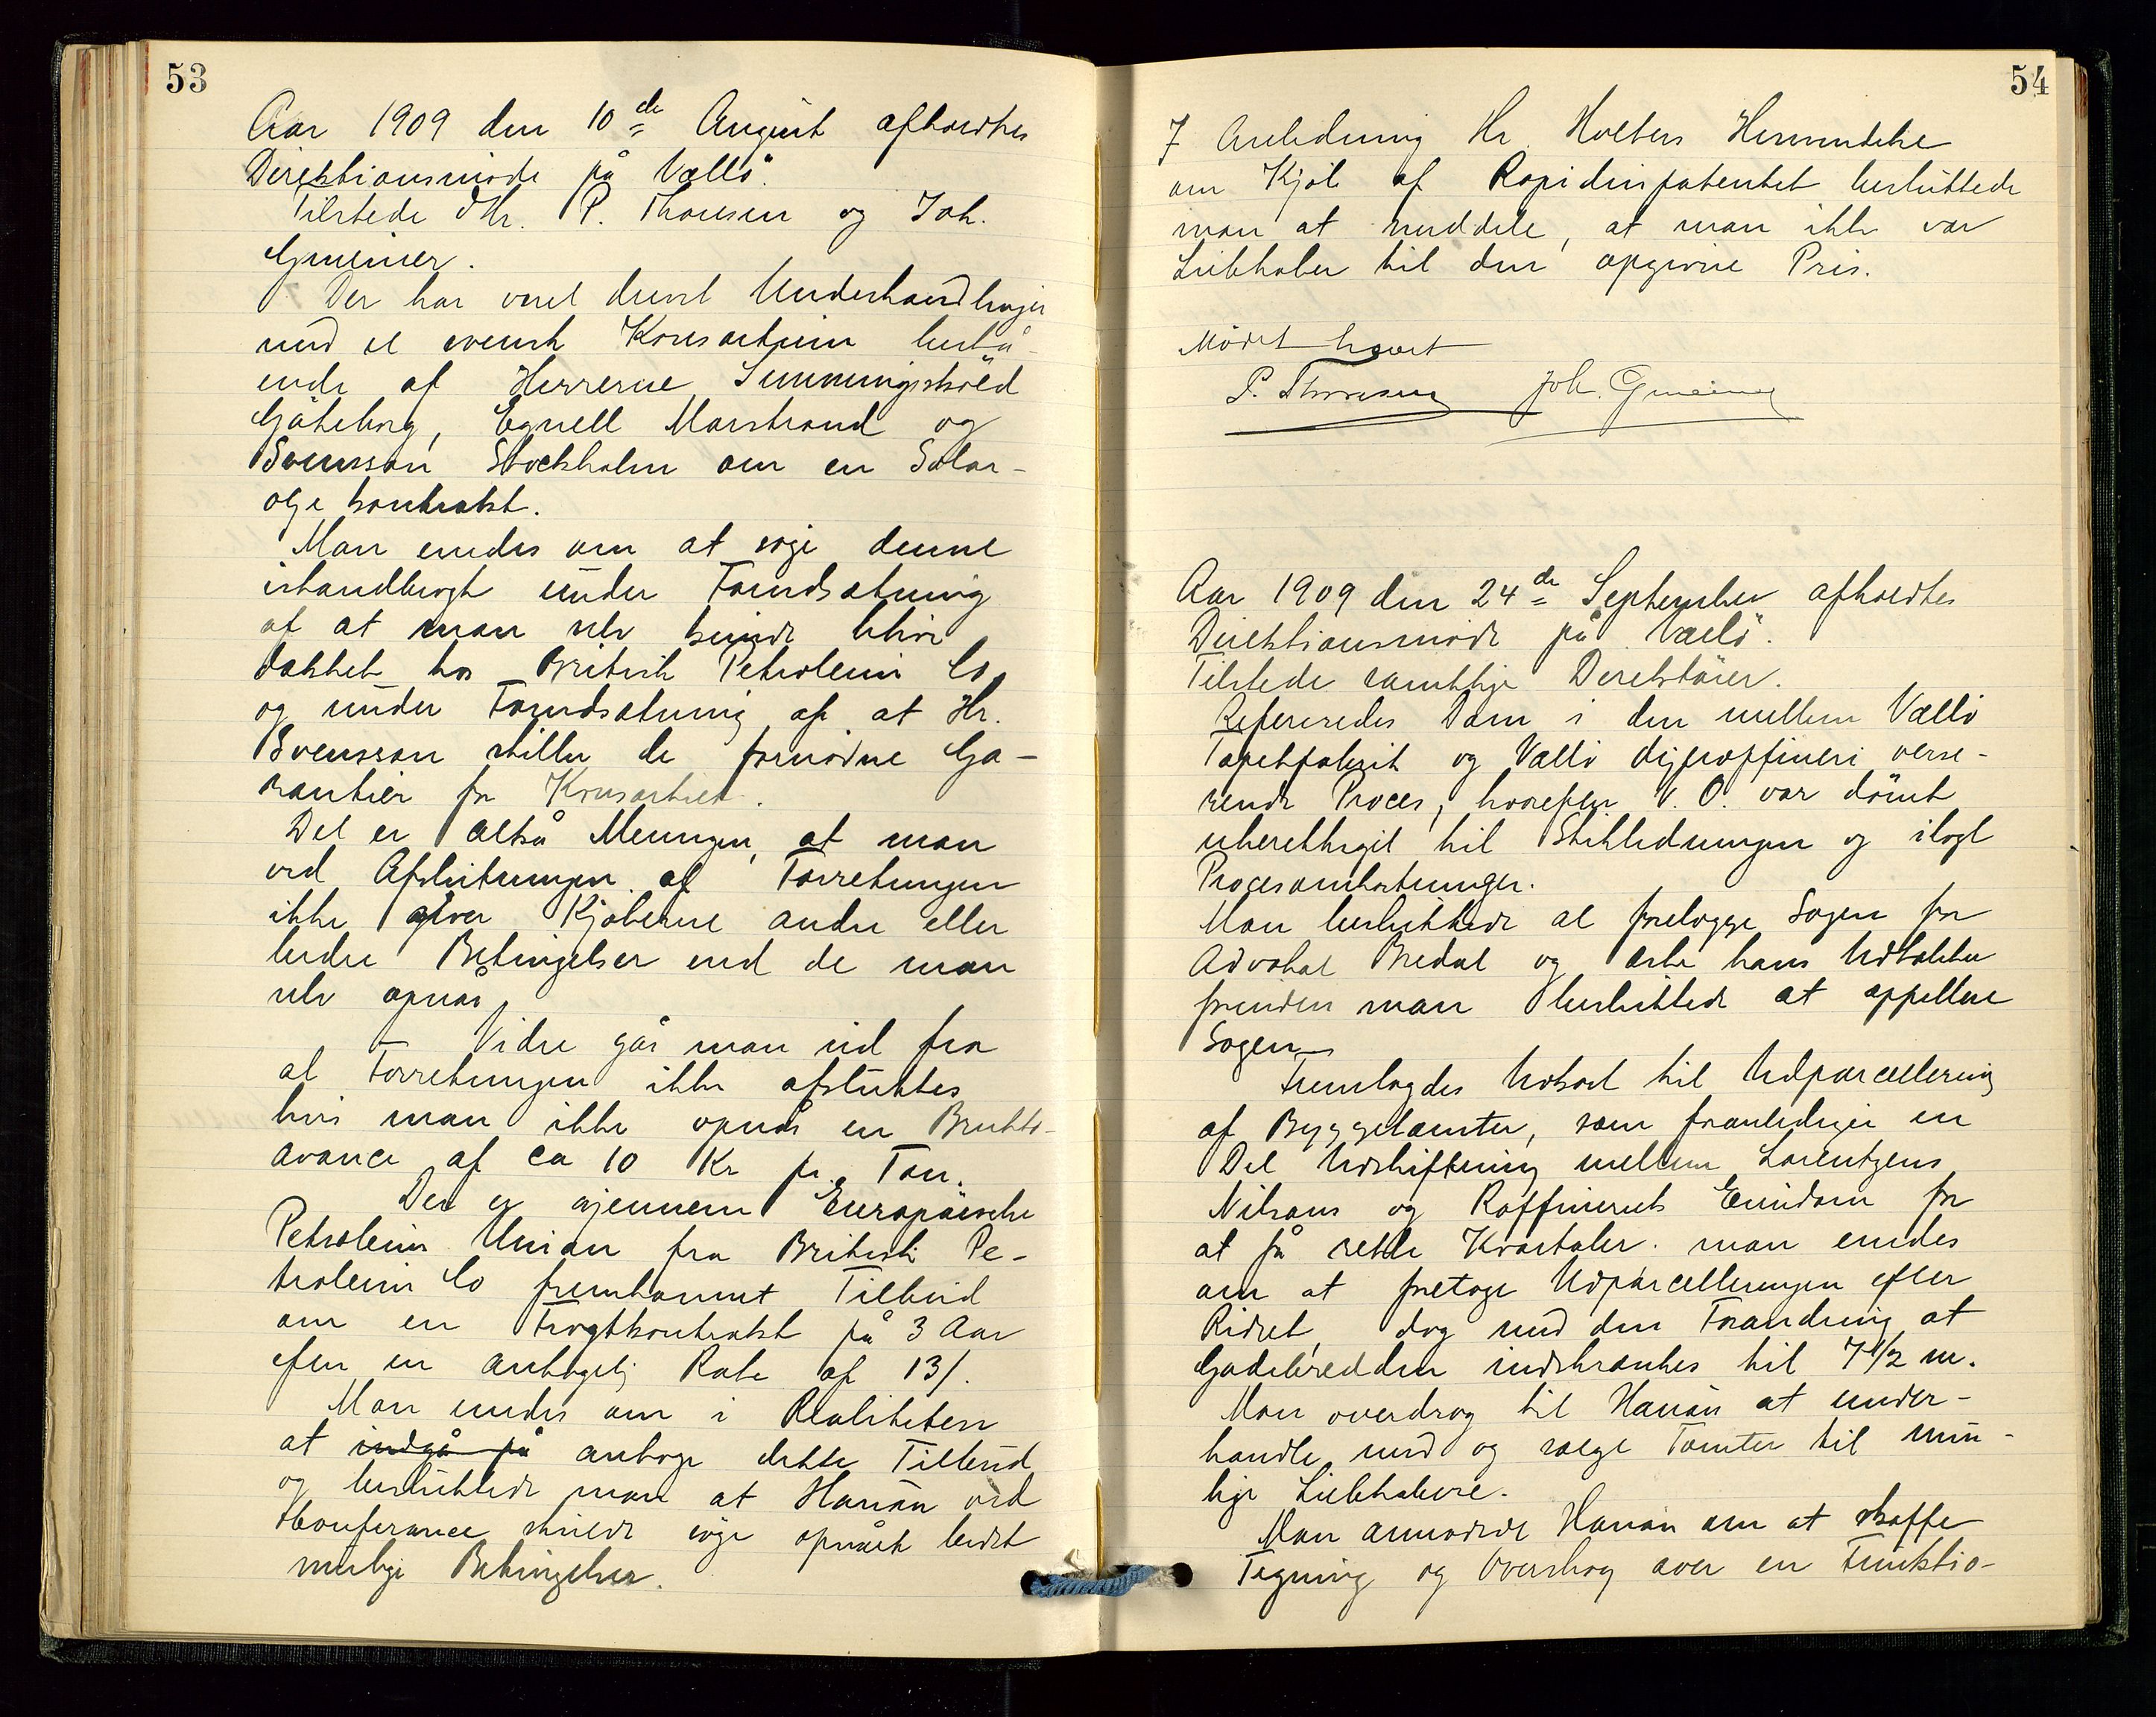 53
Aar 1909 den 10de August afholdtes
Direktionsmøde på Vallö.
Tilstede d'Hr. P. Thoresen og Joh.
Gmeiner.
Der har været drevet Underhandlinger
med et svensk Konsortium bestå-
ende af Herrerne Simmingsköld
Göteborg, Egnell Marstrand og
Svensson Stockholm om en Solar-
olje kontrakt.
Man enedes om at søge denne
istandbragt under Forudsætning
af at man selv kunde blive
dækket hos British Petroleum Co
og under Forudsætning af at Hr.
Svensson stiller de fornødne Ga-
rantier for Konsortiet.
Det er altså Meningen, at man
ved Afslutningen af Forretningen
ikke giver Kjøberne andre eller
bedre Betingelser end de man
selv opnår.
Vidre går man ud fra
at Forretningen ikke afsluttes
hvis man ikke opnår en Brutto-
avance af ca 10 Kr pr. Ton.
Der er gjennem Europäische
Petroleum Union fra British Pe-
troleum Co fremkommet Tilbud
om en Fragtkontrakt på 3 Aar
efter en antagelig Rate af 13/.
Man enedes om i Realiteten
at indgå på antage dette Tilbud
og besluttede man at Hanån ved
Konferance skulde søge opnået bedst
mulige Betingelser.
54
I Anledning Hr. Holters Henvendelse
om Kjøb af Rapidinpatentet besluttede
man at meddele, at man ikke var
Liebhaber til den opgivne Pris.
Mødet hævet
P. Thoresen Joh. Gmeiner
Aar 1909 den 24de September afholdtes
Direktionsmøde på Vallö.
Tilstede samtlige Direktører.
Refereredes Dom i den mellem Vallö
Tapetfabrik og Vallö Oljeraffineri verse-
rende Proces, hvorefter V. O. var dömt
uberettiget til Stikledningen og ilagt
Procesomkostninger.
Man besluttede at forelægge Sagen for
Advokat Bredal og æske hans Udtalelse
forinden man besluttede at appellere
Sagen.
Fremlagdes Udkast til Udparcellering
af Byggetomter, som foranlediger en
Del Udskiftning mellem Lorentzens,
Nilsons og Raffineriets Eiendom for
at få rette Kvartaler. man enedes
om at foretage Udparcelleringen efter
Ridset, dog med den Forandring at
Gadebredden indskrænkes til 7 1/2 m.
Man overdrog til Hanån at under-
handle med og sælge Tomter til mu-
lige Liebhabere.
Man anmodede Hanån om at skaffe
Tegning og Overslag over en Funktio-